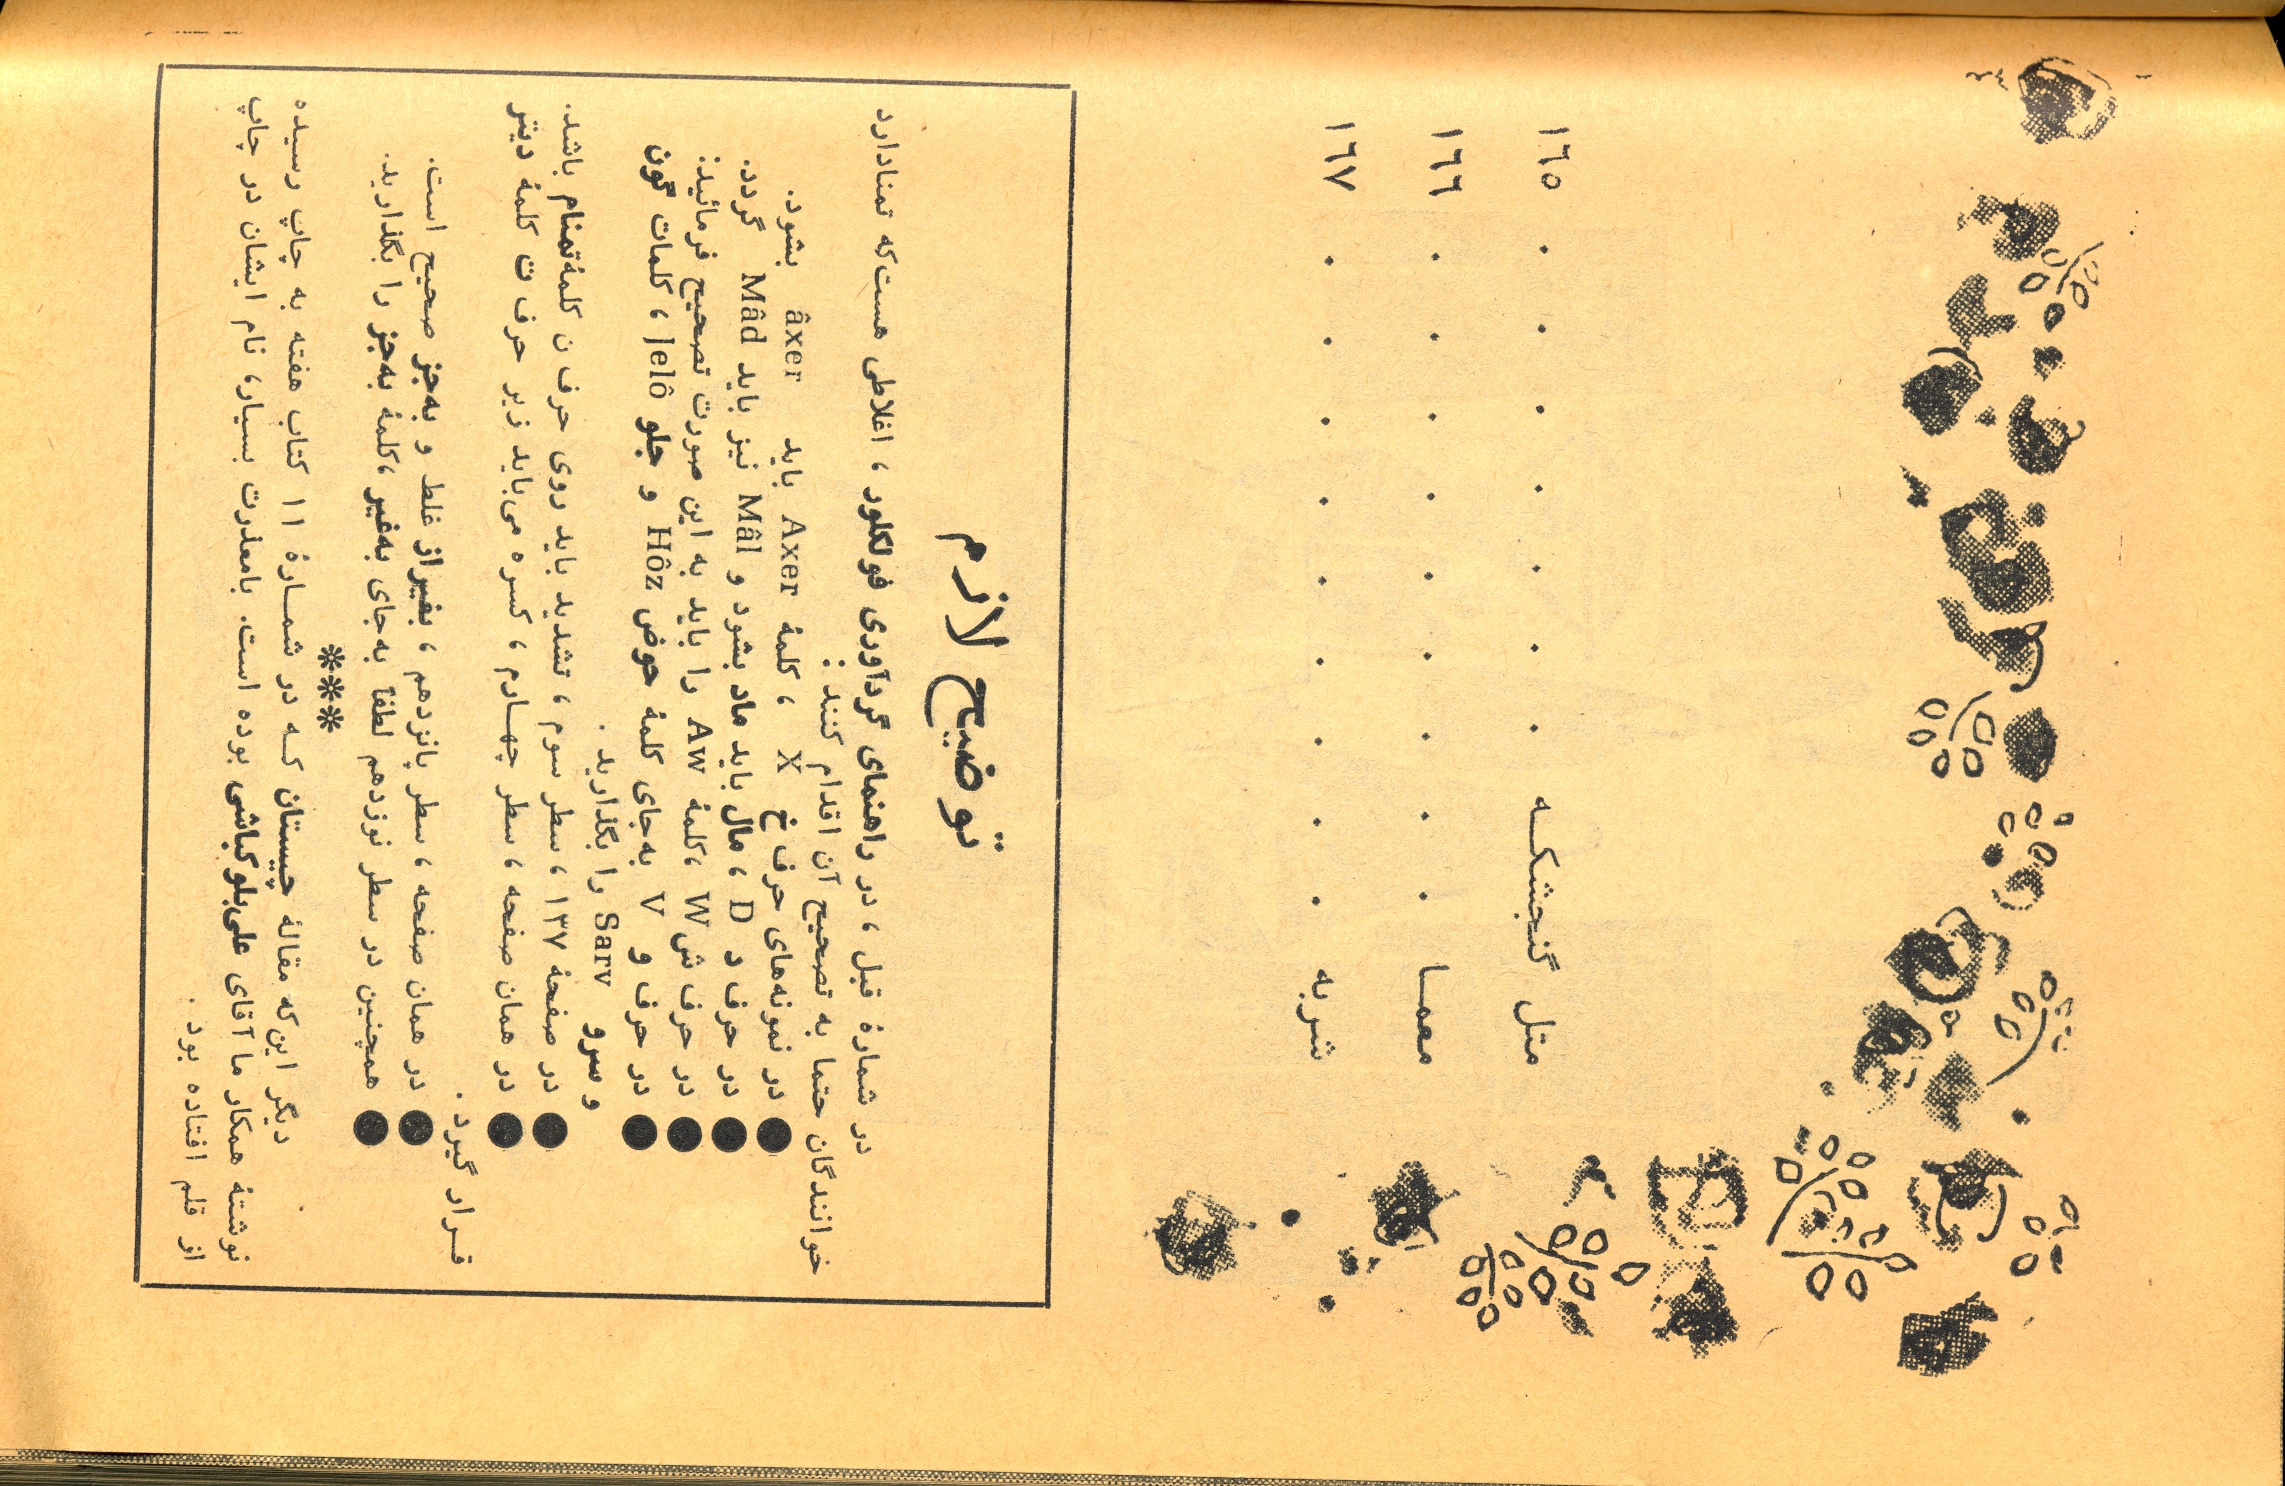 مثل گنجشکــه . . . . . . . ١٦٥
معمــا . . . . . . . . . ١٦٦
شربه . . . . . . . . . ١٦٧
توضیح لازم
در شمارهٔ قبل ، در راهنمای گردآوری فولکلور ، اغلاطی هست‌که تمنادارد
خوانندگان حتما به تصحیح آن اقدام کنند :
● در نمونه‌های حرف خ X ، کلمهٔ Axer باید âxer بشود.
● در حرف د D ، مال باید ماد بشود و Mâl نیز باید Mâd گردد.
● در حرف ش W ،کلمهٔ Aw را باید به این صورت تصحیح فرمائید:
● در حرف و V به‌جای کلمهٔ حوض Hôz و جلو Jelô ، کلمات گون
و سرو Sarv را بگذارید .
● در صفحهٔ ۱۳۷ ، سطر سوم ، تشدید باید روی حرف ن کلمهٔ‌تمنام باشد.
● در همان صفحه ، سطر چهـارم ، کسره می‌باید زیر حرف ت کلمهٔ دیتر
قـرار گیرد .
● در همان صفحه ، سطر پانزدهم ، بغیراز غلط و به‌جز صحیح است.
● همچنین در سطر نوزدهم لطفاً به‌جای به‌غیر ،کلمهٔ به‌جز را بگذارید.
***
دیگر این‌که مقالهٔ چیستان کـه در شمـارهٔ ۱۱ کتاب هفته به چاپ رسیده
نوشتهٔ همکار ما آقای علی‌بلوکباشی بوده است. بامعذرت بسیار، نام ایشان در چاپ
از قلم افتاده بود .